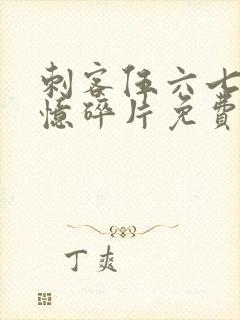 刺客伍六七
憶碎片免費
丁爽